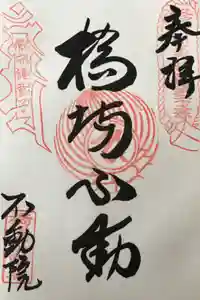 奉拝
橋場不動
不動院